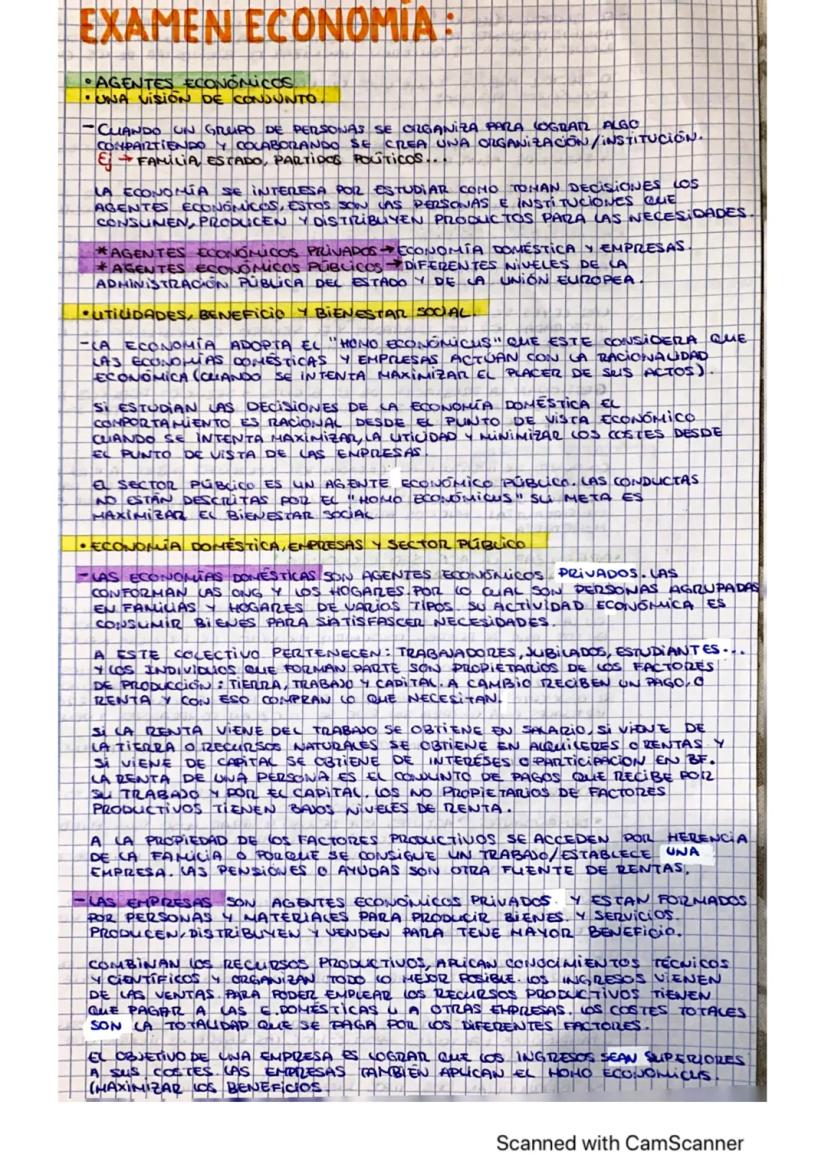 EXAMEN ECONOMÍA:
• AGENTES ECONÓMICOS
• UNA VISIÓN DE CONJUNTO.
- CUANDO UN GRUPO DE PERSONAS SE ORGANIZA PARA LOGRAR ALGO
COMPARTIENDO Y COLABORANDO SE CREA UNA ORGANIZACIÓN/INSTITUCIÓN.
Ej → FAMILIA, ESTADO, PARTIDOS POLÍTICOS...
LA ECONOMÍA SE INTERESA POR ESTUDIAR COMO TOMAN DECISIONES LOS
AGENTES ECONÓMICOS, ESTOS SON LAS PERSONAS E INSTITUCIONES QUE
CONSUMEN, PRODUCEN Y DISTRIBUYEN PRODUCTOS PARA LAS NECESIDADES.
* AGENTES ECONÓMICOS PRIVADOS → ECONOMÍA DOMÉSTICA Y EMPRESAS.
* AGENTES ECONÓMICOS PÚBLICOS → DIFERENTES NIVELES DE LA
ADMINISTRACIÓN PÚBLICA DEL ESTADO Y DE LA UNIÓN EUROPEA.
• UTILIDADES, BENEFICIO Y BIENESTAR SOCIAL.
- LA ECONOMÍA ADOPTA EL "HOMO ECONÓMICUS" QUE ESTE CONSIDERA QUE
LAS ECONOMÍAS DOMÉSTICAS Y EMPRESAS ACTÚAN CON LA RACIONALIDAD
ECONÓMICA (CUANDO SE INTENTA MAXIMIZAR EL PLACER DE SUS ACTOS).
SI ESTUDIAN LAS DECISIONES DE LA ECONOMÍA DOMÉSTICA EL
COMPORTAMIENTO ES RACIONAL DESDE EL PUNTO DE VISTA ECONÓMICO
CUANDO SE INTENTA MAXIMIZAR, LA UTILIDAD Y MINIMIZAR LOS COSTES DESDE
EL PUNTO DE VISTA DE LAS EMPRESAS.
EL SECTOR PÚBLICO ES UN AGENTE ECONÓMICO PÚBLICO. LAS CONDUCTAS
NO ESTÁN DESCRITAS POR EL "HOMO ECONÓMICUS" SU META ES
MAXIMIZAR EL BIENESTAR SOCIAL
• ECONOMÍA DOMÉSTICA, EMPRESAS Y SECTOR PÚBLICO
- LAS ECONOMÍAS DOMÉSTICAS SON AGENTES ECONÓMICOS PRIVADOS. LAS
CONFORMAN LAS ONG Y LOS HOGARES. POR LO CUAL SON PERSONAS AGRUPADAS
EN FAMILIAS Y HOGARES DE VARIOS TIPOS. SU ACTIVIDAD ECONÓMICA ES
CONSUMIR BIENES PARA SATISFASCER NECESIDADES.
A ESTE COLECTIVO PERTENECEN: TRABAJADORES, JUBILADOS, ESTUDIANTES...
Y LOS INDIVIDUOS QUE FORMAN PARTE SON PROPIETARIOS DE LOS FACTORES
DE PRODUCCIÓN: TIERRA, TRABAJO Y CAPITAL. A CAMBIO RECIBEN UN PAGO, O
RENTA Y CON ESO COMPRAN LO QUE NECESITAN.
SI LA RENTA VIENE DEL TRABAJO SE OBTIENE EN SALARIO, SI VIENE DE
LA TIERRA O RECURSOS NATURALES SE OBTIENE EN ALQUILERES O RENTAS Y
SI VIENE DE CAPITAL SE OBTIENE DE INTERESES O PARTICIPACIÓN EN BF.
LA RENTA DE UNA PERSONA ES EL CONJUNTO DE PAGOS QUE RECIBE POR
SU TRABAJO Y POR EL CAPITAL, LOS NO PROPIETARIOS DE FACTORES
PRODUCTIVOS TIENEN BAJOS NIVELES DE RENTA.
A LA PROPIEDAD DE LOS FACTORES PRODUCTIVOS SE ACCEDEN POR HERENCIA
DE LA FAMILIA O PORQUE SE CONSIGUE UN TRABAJO/ESTABLECE UNA
EMPRESA. LAS PENSIONES O AYUDAS SON OTRA FUENTE DE RENTAS.
- LAS EMPRESAS SON AGENTES ECONÓMICOS PRIVADOS. Y ESTAN FORMADOS
POR PERSONAS Y MATERIALES PARA PRODUCIR BIENES Y SERVICIOS.
PRODUCEN, DISTRIBUYEN Y VENDEN PARA TENE MAYOR BENEFICIO.
COMBINAN LOS RECURSOS PRODUCTIVOS, APLICAN CONOCIMIENTOS TÉCNICOS
Y CIENTÍFICOS Y ORGANIZAN TODO LO MEJOR POSIBLE. LOS INGRESOS VIENEN
DE LAS VENTAS. PARA PODER EMPLEAR LOS RECURSOS PRODUCTIVOS TIENEN
QUE PAGAR A LAS E.DOMÉSTICAS U A OTRAS EMPRESAS. LOS COSTES TOTALES
SON LA TOTALIDAD QUE SE PAGA POR LOS DIFERENTES FACTORES.
EL OBJETIVO DE UNA EMPRESA ES LOGRAR QUE LOS INGRESOS SEAN SUPERIORES
A SUS COSTES. LAS EMPRESAS TAMBIÉN APLICAN EL HOMO ECONOMICUS.
(MAXIMIZAR LOS BENEFICIOS
Scanned with CamScanner